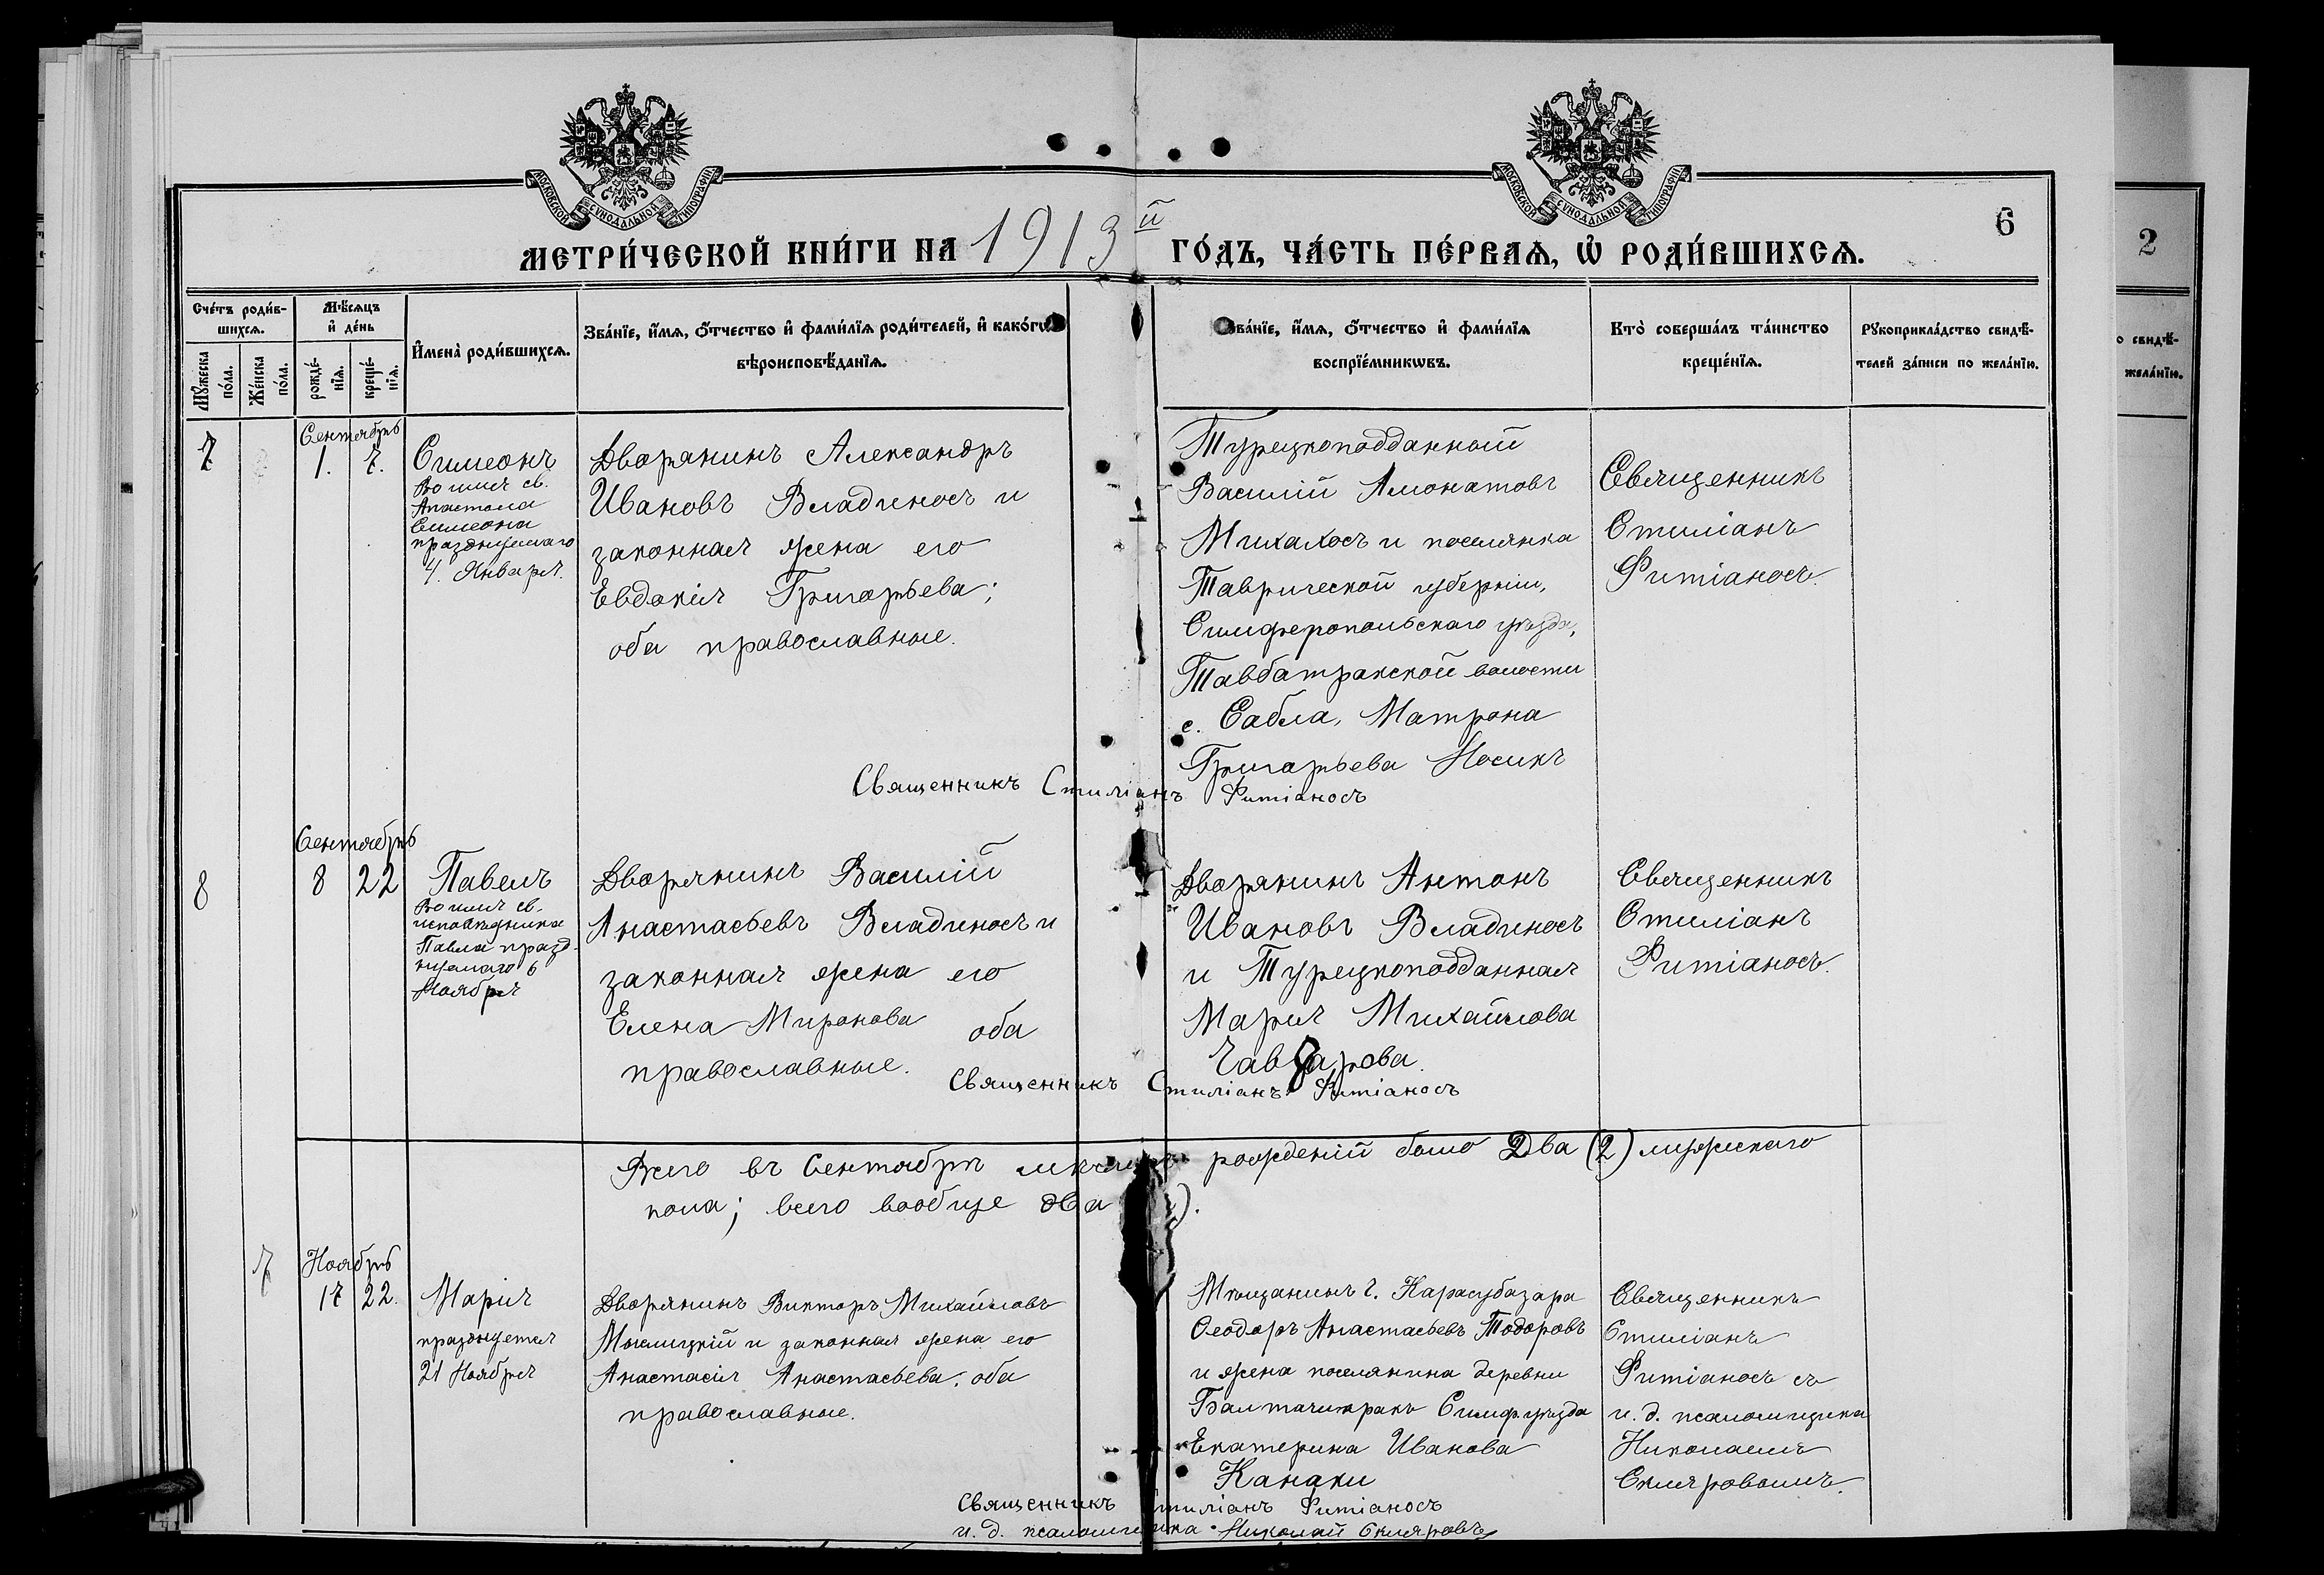 МОСКОВСКОЙ СѴНОДАЛЬНОЙ ТИПОГРАФІИ
МОСКОВСКОЙ СѴНОДАЛЬНОЙ ТИПОГРАФІИ
6
2
МЕТРИ́ЧЕСКОЙ КНИ́ГИ НА 1913й ГО́ДЪ, ЧА́СТЬ ПЕ́РВАѦ, Ѡ҆ РОДИ́ВШИХСѦ.
Сче́тъ роди́в-
шихсѧ.
Мꙋ́жеска
по́ла.
Же́нска
по́ла.
Мѣ́сѧцъ
и҆ де́нь
рожде́-
нїѧ.
креще́-
нїѧ.
И҆мена̀ роди́вшихсѧ.
Зва́нїе, и҆́мѧ, ѻ҆́тчество и҆ фами́лїѧ роди́телей, и҆ како́гѡ
вѣроисповѣ́данїѧ.
Зва́нїе, и҆́мѧ, ѻ҆́тчество и҆ фами́лїѧ
воспрїе́мникѡвъ.
Кто̀ соверша́лъ та́инство
креще́нїѧ.
Рꙋкоприкла́дство свидѣ́-
телей за́писи по жела́нїю.
о свидѣ́-
жела́нїю.
7
Сентябрь
1. 7.
Симеонъ
Во имя св.
Апостола
Симеона
празднуемаго
4. Января.
Дворянинъ Александръ
Ивановъ Владиносъ и
законная жена его
Евдокія Григорьева;
оба православные.
Турецкоподданный
Василій Амонатовъ
Михахосъ и поселянка
Таврической губерніи,
Симферопольскаго уѣзда,
Тавбатракской волости
с. Сабла, Матрона
Григорьева Носикъ
Священникъ
Стиліанъ
Фитіаносъ.
Священникъ Стиліанъ Фитіаносъ
8
Сентябрь
8 22
Павелъ
Во имя св.
исповѣдника
Павла празд-
нуемаго 6
Ноября
Дворянинъ Василій
Анастасьевъ Владиносъ и
законная жена его
Елена Миронова оба
православные.
Дворянинъ Антонъ
Ивановъ Владиносъ
и Турецкоподданная
Марія Михайлова
Священникъ
Стиліанъ
Фитіаносъ.
Священникъ Стиліанъ Фитіаносъ
Всего въ Сентябрѣ мѣсяцѣ рожденій было Два (2) мужскаго
пола; всего вообще два
7
Ноябрь
17 22.
Марія
празднуется
21 Ноября
Дворянинъ Викторъ Михайловъ
Мыслицкій и законная жена его
Анастасія Анастасьева. оба
православные.
Мѣщанинъ г. Карасубазара
Ѳеодоръ Анастасьевъ Тодоровъ
и жена поселянина деревни
Балтачикракъ Симф. уѣзда
Екатерина Иванова
Канаки
Священникъ
Стиліанъ
Фитіаносъ съ
и. д. псаломщика
Николаемъ
Скляровымъ.
Священникъ Стиліанъ Фитіаносъ
и. д. псаломщика Николай Скляровъ